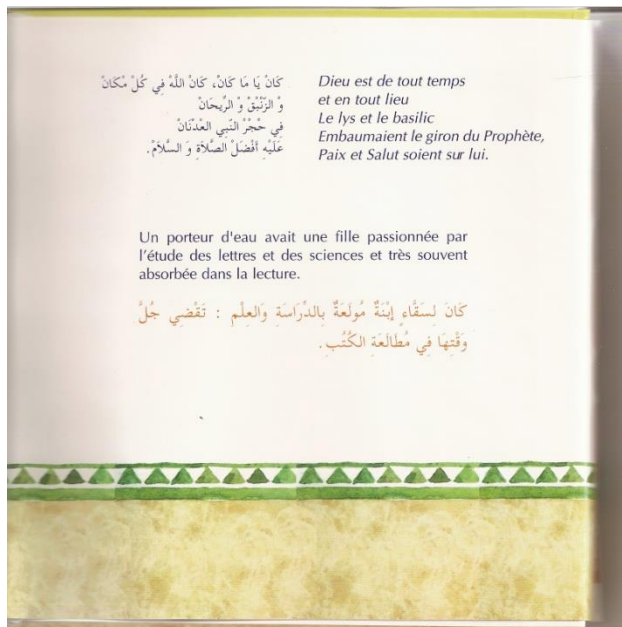 كَانْ يَا مَا كَانْ، كَانْ اللَّهْ فِي كُلْ مْكَانْ
وْ الزَّنْبَقْ وْ الرِّيحَانْ
فِي حْجَرْ النّبِي العَدْنَانْ
عَلَيْهِ أَفْضَلْ الصَّلاَةِ وَ السَّلاَمْ.
Dieu est de tout temps
et en tout lieu
Le lys et le basilic
Embaumaient le giron du Prophète,
Paix et Salut soient sur lui.
Un porteur d'eau avait une fille passionnée par
l'étude des lettres et des sciences et très souvent
absorbée dans la lecture.
كَانَ لِسَقَّاءٍ إِبْنَةٌ مُولَعَةٌ بِالدِّرَاسَةِ وَالعِلْمِ : تَقْضِي جُلَّ
وَقْتِهَا فِي مُطَالَعَةِ الكُتُبِ.